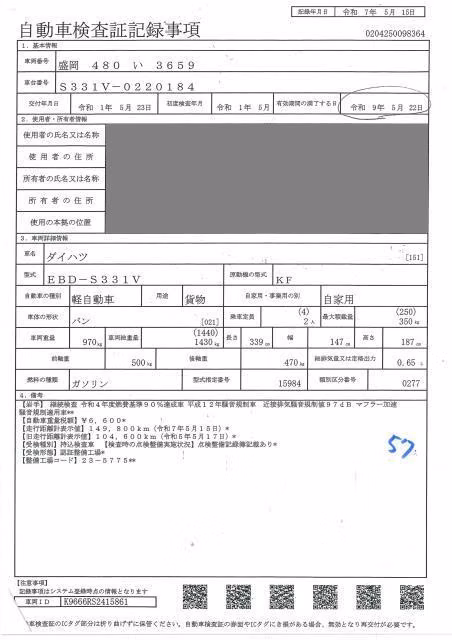 記録年月日 令和 7年 5月 15日
自動車検査証記録事項
0204250098364
1. 基本情報
車両番号 盛岡 480 い 3659
車台番号 S331V-0220184
交付年月日 令和 1年 5月 23日 初度検査年月 令和 1年 5月 有効期間の満了する日 令和 9年 5月 22日
2. 使用者・所有者情報
使用者の氏名又は名称
使用者の住所
所有者の氏名又は名称
所有者の住所
使用の本拠の位置
3. 車両詳細情報
車名 ダイハツ [151]
型式 EBD-S331V 原動機の型式 KF
自動車の種別 軽自動車 用途 貨物 自家用・事業用の別 自家用
車体の形状 バン [021] 乗車定員 (4) 2人 最大積載量 (250) 350kg
車両重量 970kg 車両総重量 (1440) 1430kg 長さ 339cm 幅 147cm 高さ 187cm
前軸重 500kg 後軸重 470kg 総排気量又は定格出力 0.65 L
燃料の種類 ガソリン 型式指定番号 15984 類別区分番号 0277
4. 備考
【岩手】 継続検査 令和4年度燃費基準90%達成車 平成12年騒音規制車 近接排気騒音規制値97dB マフラー加速
騒音規制適用車**
【自動車重量税額】¥6,600*
【走行距離計表示値】149,800km(令和7年5月15日)*
【旧走行距離計表示値】104,600km(令和5年5月17日)*
【受検種別】持込検査車 【検査時の点検整備実施状況】点検整備記録簿記載あり*
【受検形態】認証整備工場*
【整備工場コード】23-5775**
57
【注意事項】
記録事項はシステム登録時点の情報となります
車両ID K9666RS2415861
車検査証のICタグ部分は折り曲げずに保管ください。自動車検査証の券面やICタグにき損がある場合、無効となり再交付が必要です。